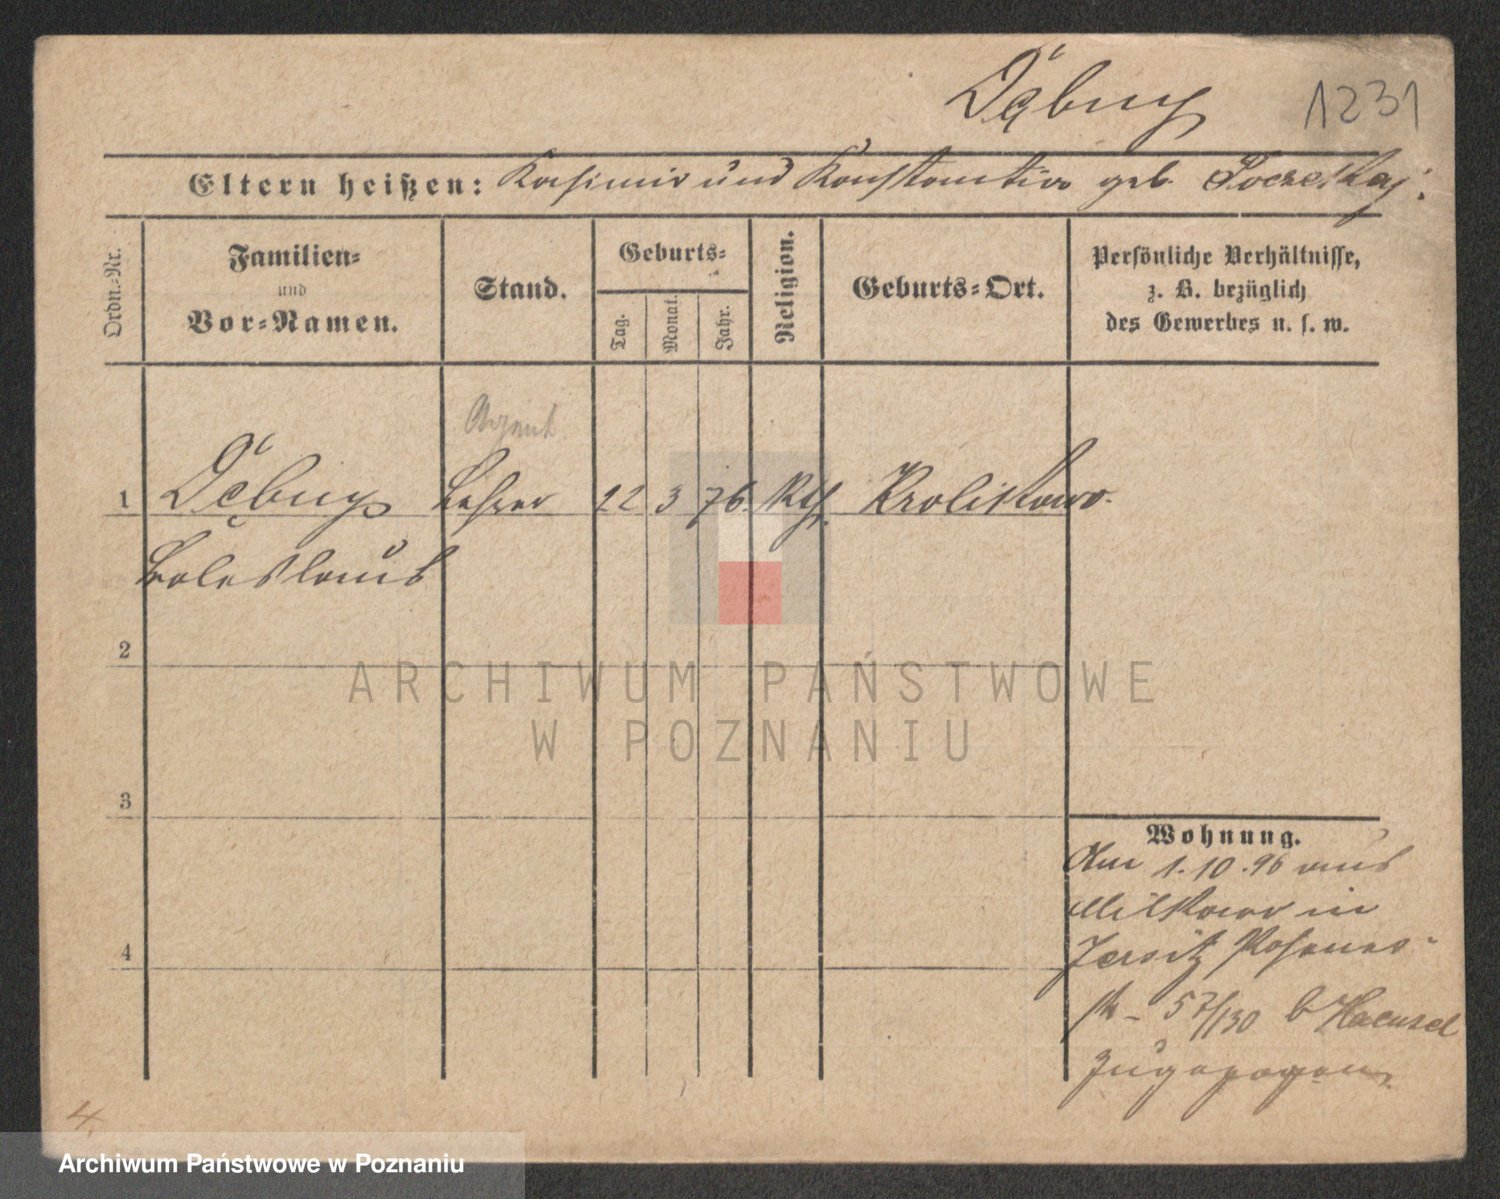 Dąbny
1231
Eltern heißen: Kasimir und Konstantin geb.
Ordn.-Nr.
Familien-
und
Vor-Namen.
Stand.
Geburts-
Tag.
Monat.
Jahr.
Religion.
Geburts-Ort.
Persönliche Verhältnisse,
z. B. bezüglich
des Gewerbes u. s. w.
Agent
1 Dąbny Lehrer 22 3 76. Kth. Krolikowo.
Boleslaus
2
ARCHIWUM PAŃSTWOWE
W POZNANIU
3
Wohnung.
Am 1.10.96 aus
in
4
Jersitz Posener-
str- 57/130 b Haensel
zugezogen.
4.
Archiwum Państwowe w Poznaniu